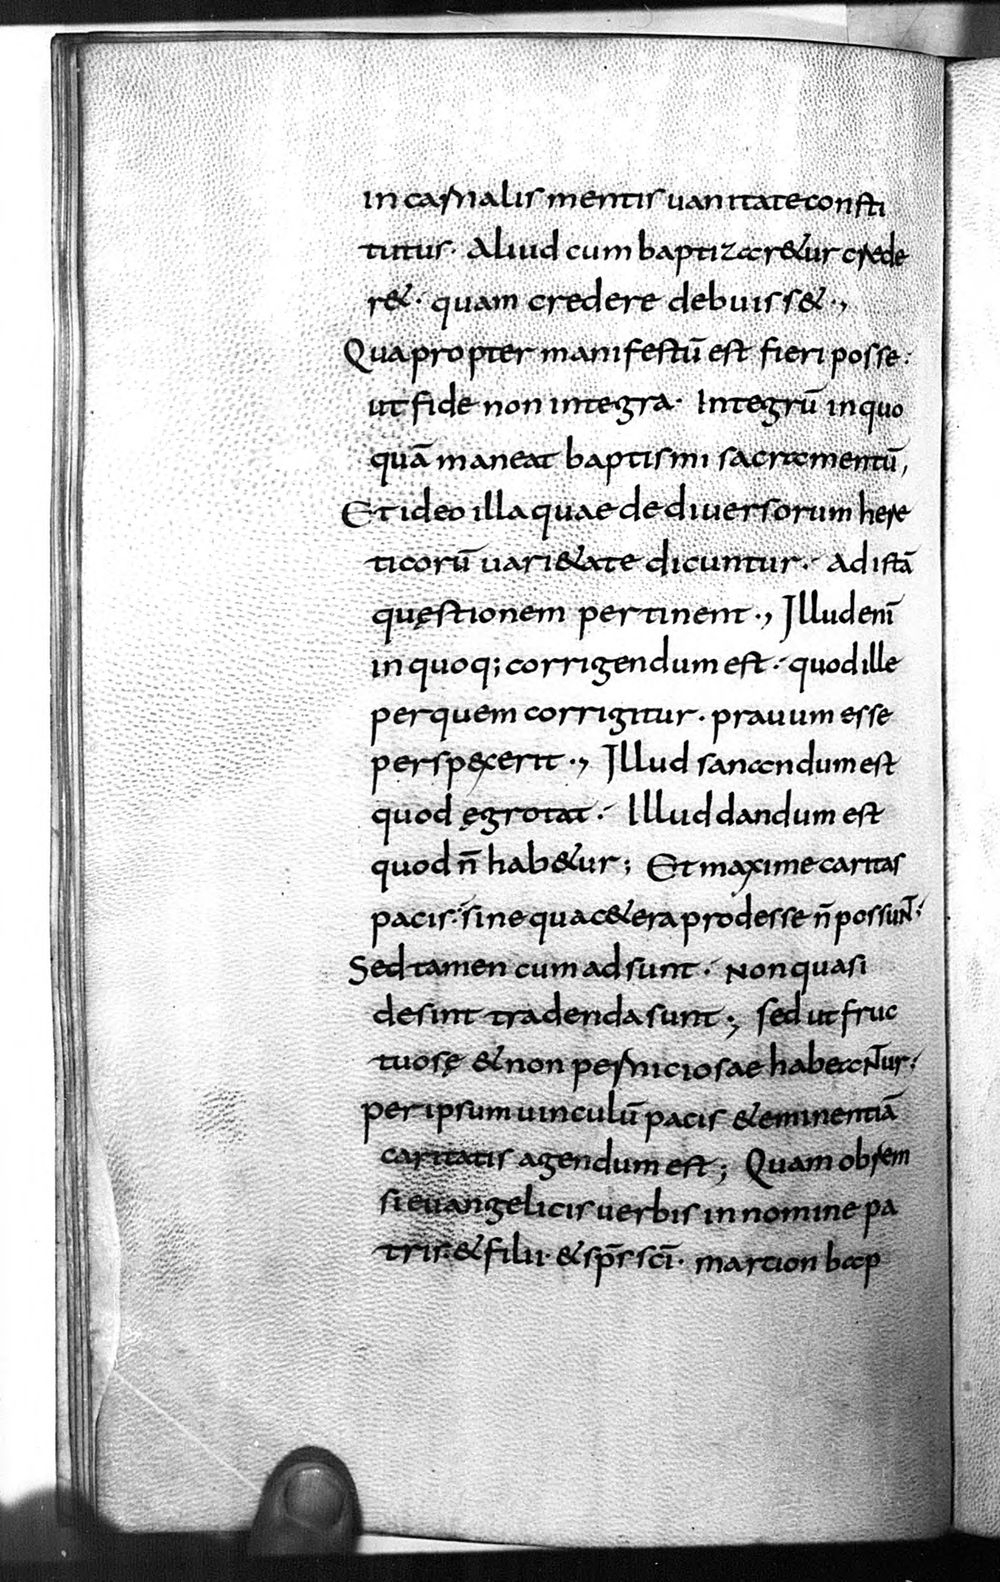 in carnalis mentis uanitate consti
tutus· Aliud cum baptizar&ur crede
r&· quam credere debuiss&·,
Quapropter manifestū est fieri posse:
ut fide non integra· Integrū in quo
quā maneat baptismi sacramentū,
Et ideo illa quae de diuersorum here
ticorū uari&ate dicuntur· Ad istā
quęstionem pertinent·, Illud enī
in quoq; corrigendum est· quod ille
per quem corrigitur· prauum esse
perspexerit·, Illud sanandum est
quod ęgrotat· Illud dandum est
quod n̄ hab&ur; Et maxime caritas
pacis· sine qua c&era prodesse n̄ possunt;
Sed tamen cum adsunt· Non quasi
desint tradenda sunt; sed ut fruc
tuosę & non perniciosae habeantur·
per ipsum uinculū pacis & eminentiā
caritatis agendum est; Quam obrem
si euangelicis uerbis in nomine pa
tris· & filii· & sp̄s sc̄i· marcion bap